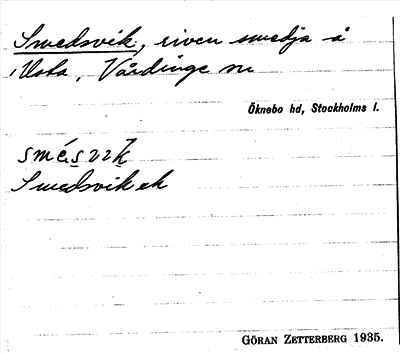 Smedsvik, riven smedja å
Vårdinge sn
Öknebo hd, Stockholms l.
Smedsvik
GÖRAN ZETTERBERG 1935.